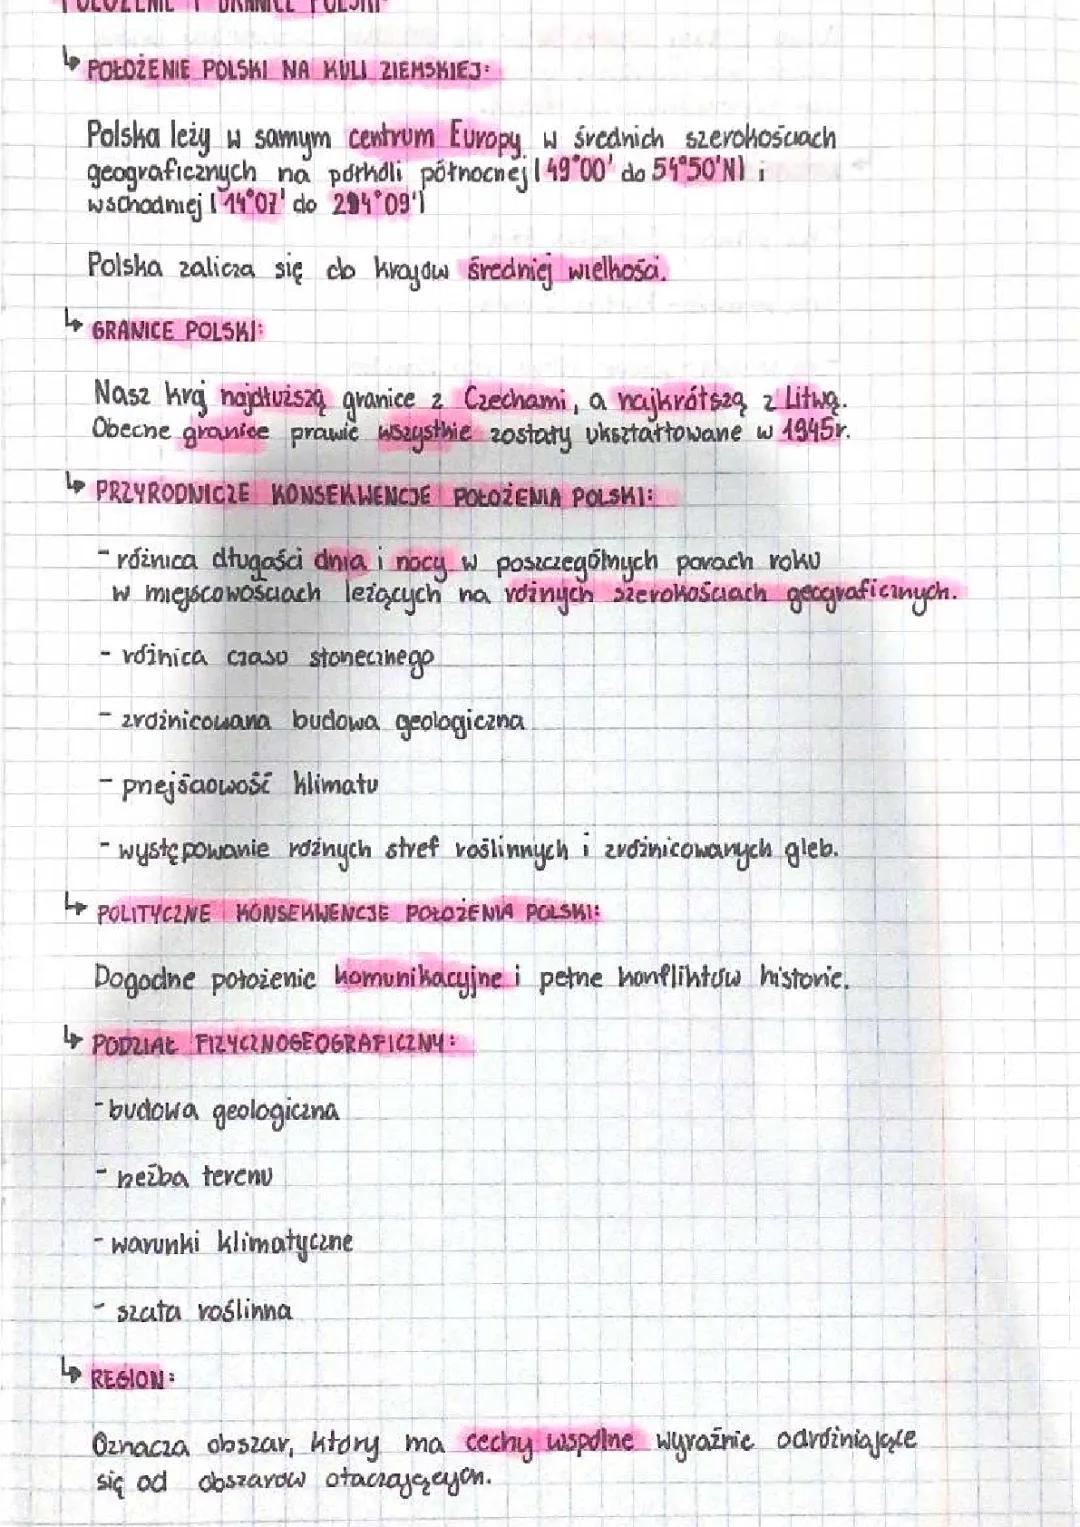 POŁOŻENIE I GRANICE POLSKI
↳ POŁOŻENIE POLSKI NA KULI ZIEMSKIEJ:
Polska leży w samym centrum Europy w średnich szerokościach
geograficznych na półkuli północnej (49°00' do 54°50'N) i
wschodniej (14°07' do 24°09')
Polska zalicza się do krajów średniej wielkości.
↳ GRANICE POLSKI:
Nasz kraj najdłuższą granice z Czechami, a najkrótszą z Litwą.
Obecne granice prawie wszystkie zostały ukształtowane w 1945r.
↳ PRZYRODNICZE KONSEKWENCJE POŁOŻENIA POLSKI:
- różnica długości dnia i nocy w poszczególnych porach roku
w miejscowościach leżących na różnych szerokościach geograficznych.
- różnica czasu słonecznego
- zróżnicowana budowa geologiczna
- przejściowość klimatu
- występowanie różnych stref roślinnych i zróżnicowanych gleb.
↳ POLITYCZNE KONSEKWENCJE POŁOŻENIA POLSKI:
Dogodne położenie komunikacyjne i pełne konfliktów historie.
↳ PODZIAŁ FIZYCZNOGEOGRAFICZNY:
- budowa geologiczna
- rzeźba terenu
- warunki klimatyczne
- szata roślinna
↳ REGION:
Oznacza obszar, który ma cechy wspólne wyraźnie odróżniające
się od obszarów otaczających.